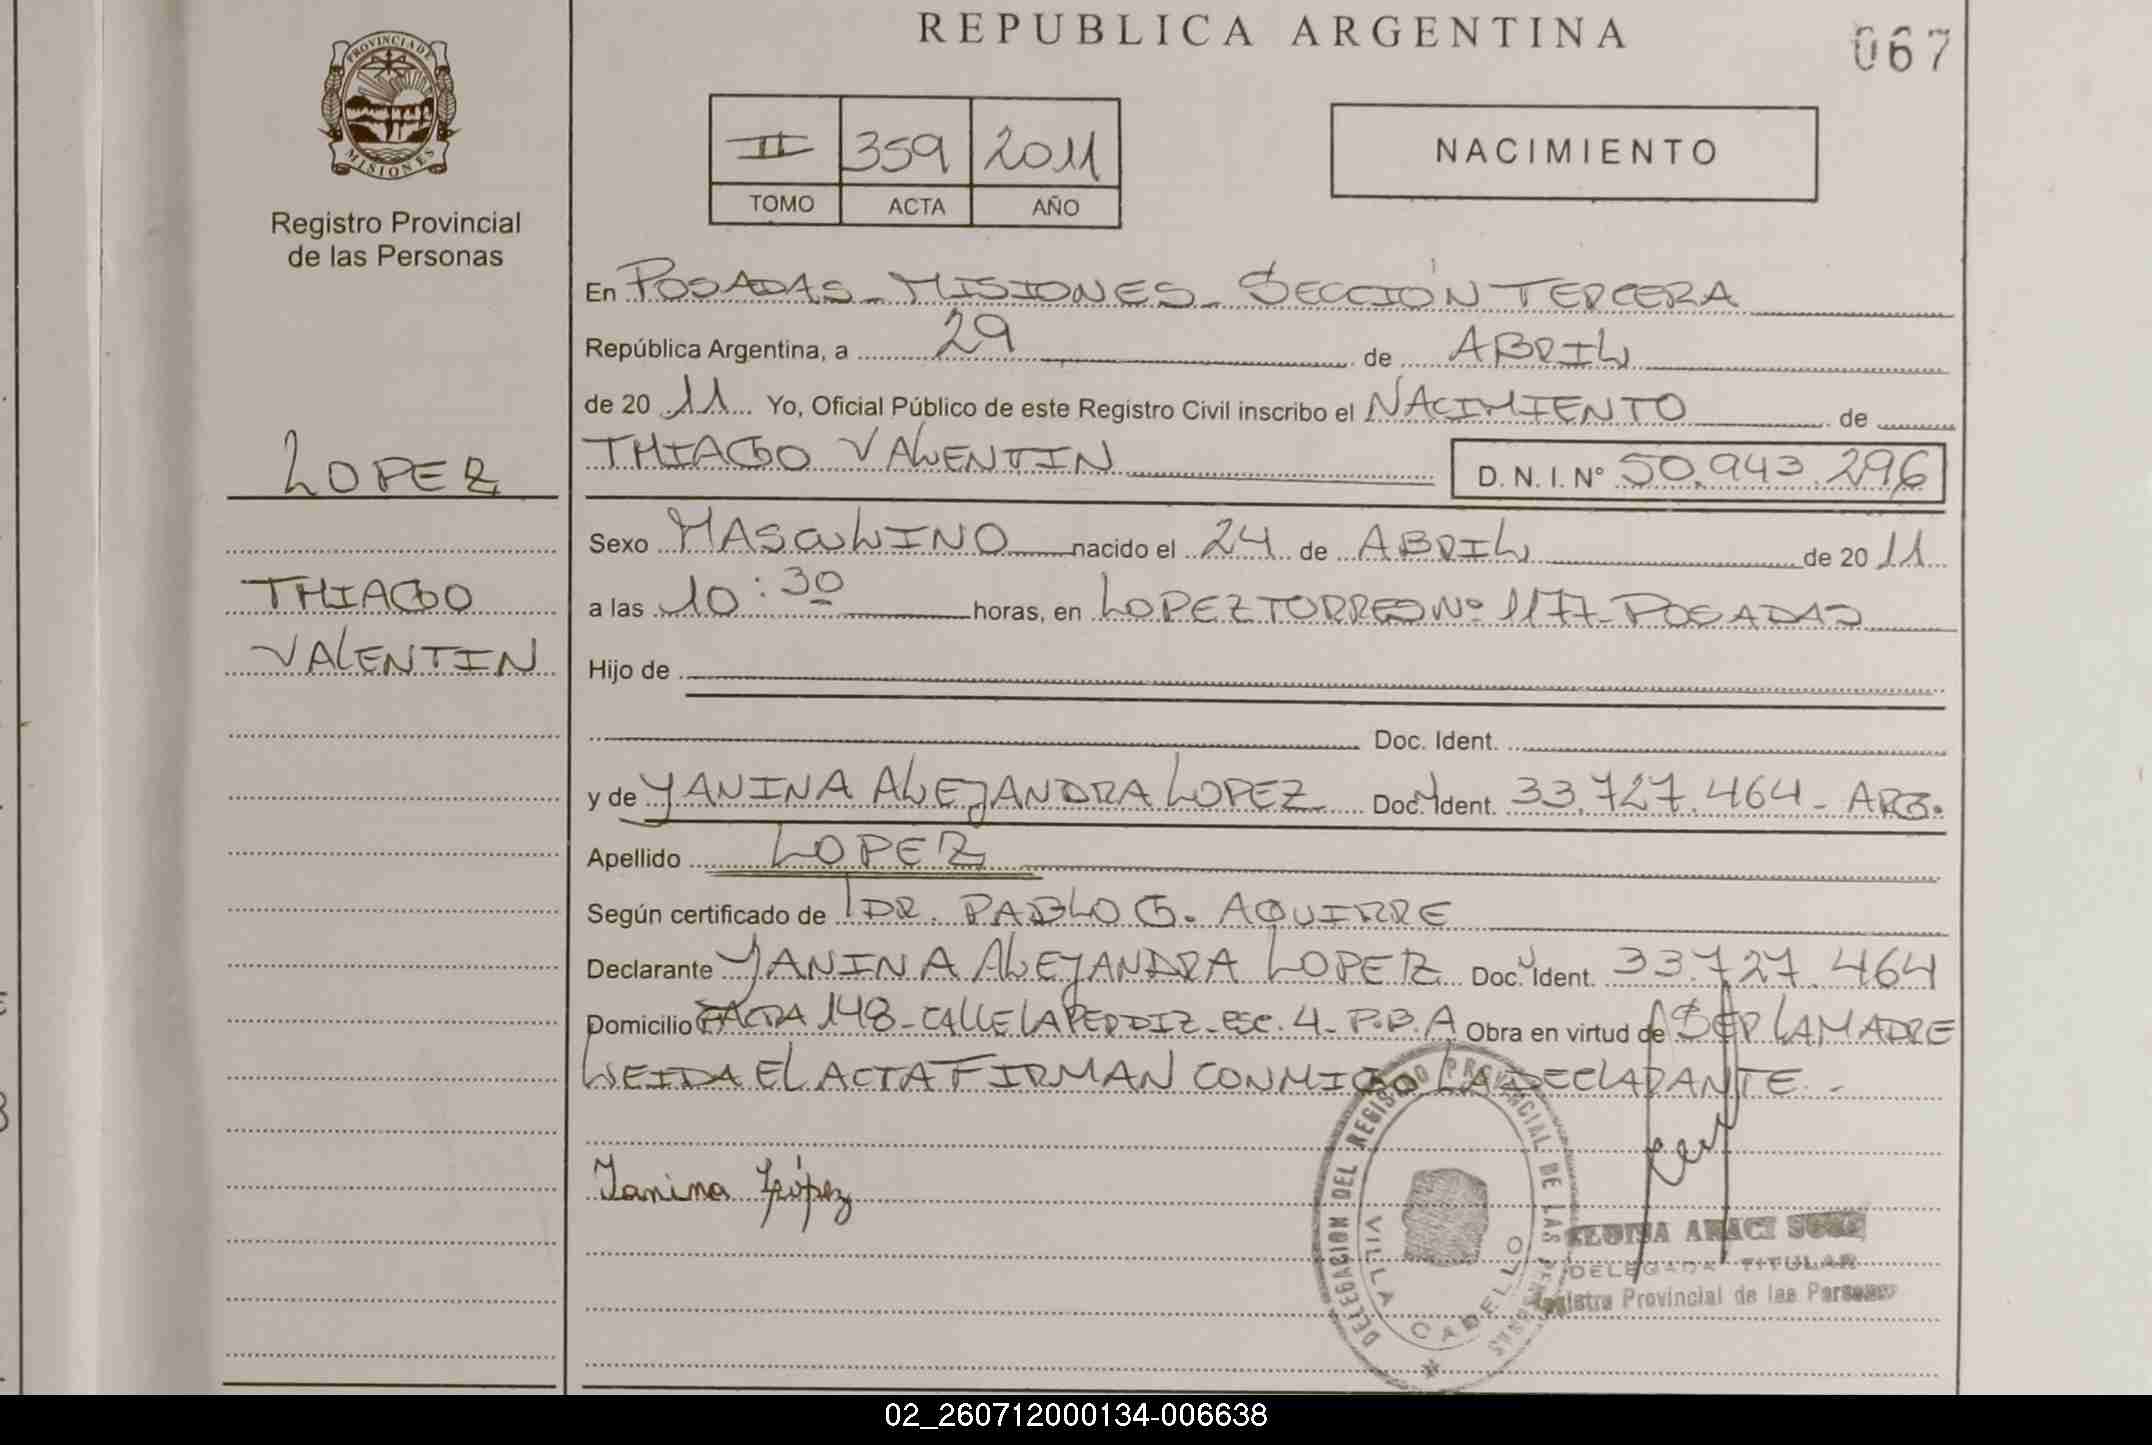 REPUBLICA ARGENTINA
067
PROVINCIA DE
MISIONES
Registro Provincial
de las Personas
II 359 2011
TOMO ACTA AÑO
NACIMIENTO
En POSADAS - MISIONES - SECCIÓN TERCERA
República Argentina, a 29 de ABRIL
de 2011 Yo, Oficial Público de este Registro Civil inscribo el NACIMIENTO de
THIAGO VALENTIN D.N.I. Nº 50.943.296
LOPEZ
THIAGO
VALENTIN
Sexo MASCULINO nacido el 24 de ABRIL de 2011
a las 10:30 horas, en LOPEZ TORRES Nº 1177 - POSADAS
Hijo de
Doc. Ident.
y de YANINA ALEJANDRA LOPEZ Doc. Ident. 33.727.464 - ARG.
Apellido LOPEZ
Según certificado de DR. PABLO G. AQUIRRE
Declarante YANINA ALEJANDRA LOPEZ Doc. Ident. 33.727.464
Domicilio 148 - CALLE LA PERDIZ - ESC. 4 - P.B. A Obra en virtud de SER LA MADRE
LEIDA EL ACTA FIRMAN CONMIGO LA DECLARANTE. -
Yanina López
DELEGACION DEL REGISTRO PROVINCIAL DE LAS PERSONAS
VILLA CABELLO
ARACI
DELEGADA TITULAR
Registro Provincial de las Personas
02_260712000134-006638